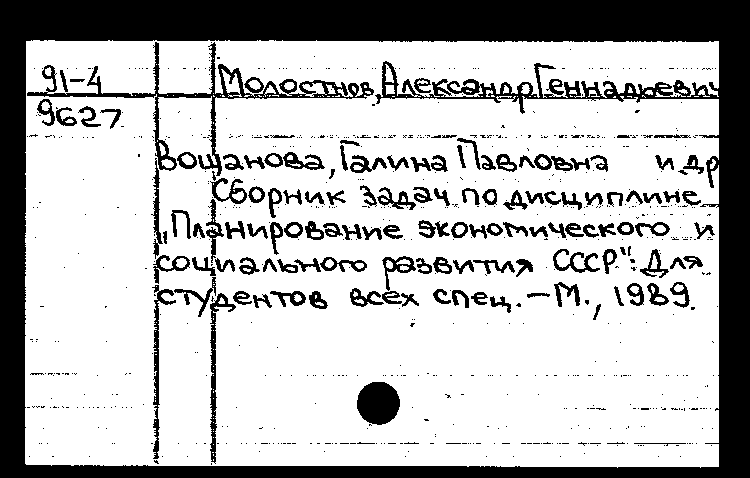 91-4 Молостнов, Александр Геннадьевич
9627
Вощанова, Галина Павловна и др
Сборник задач по дисциплине
„Планирование экономического и
социального развития СССР": Для
студентов всех спец. – М., 1989.